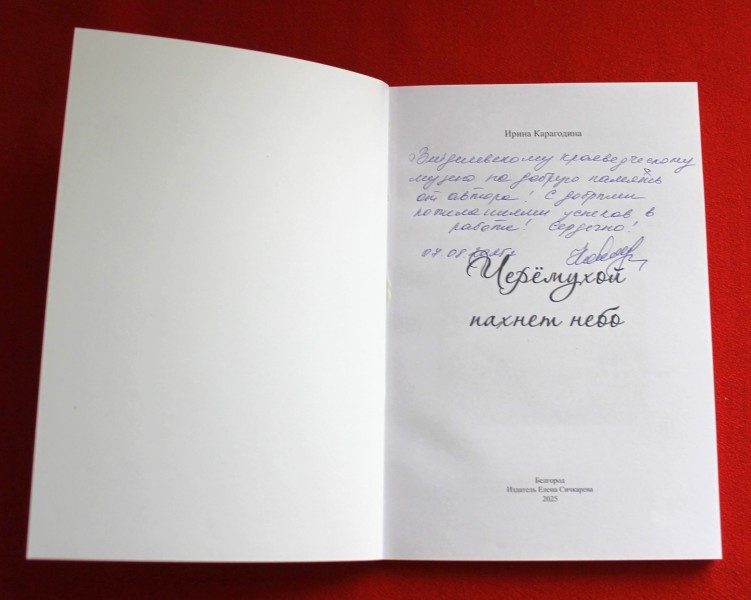 Ирина Карагодина
Вейделевскому краеведческому
музею на добрую память
от автора! С добрыми
пожеланиями успехов в
работе! Сердечно!
07.08.2025г
Черёмухой
пахнет небо
Белгород
Издатель Елена Сичкарева
2025